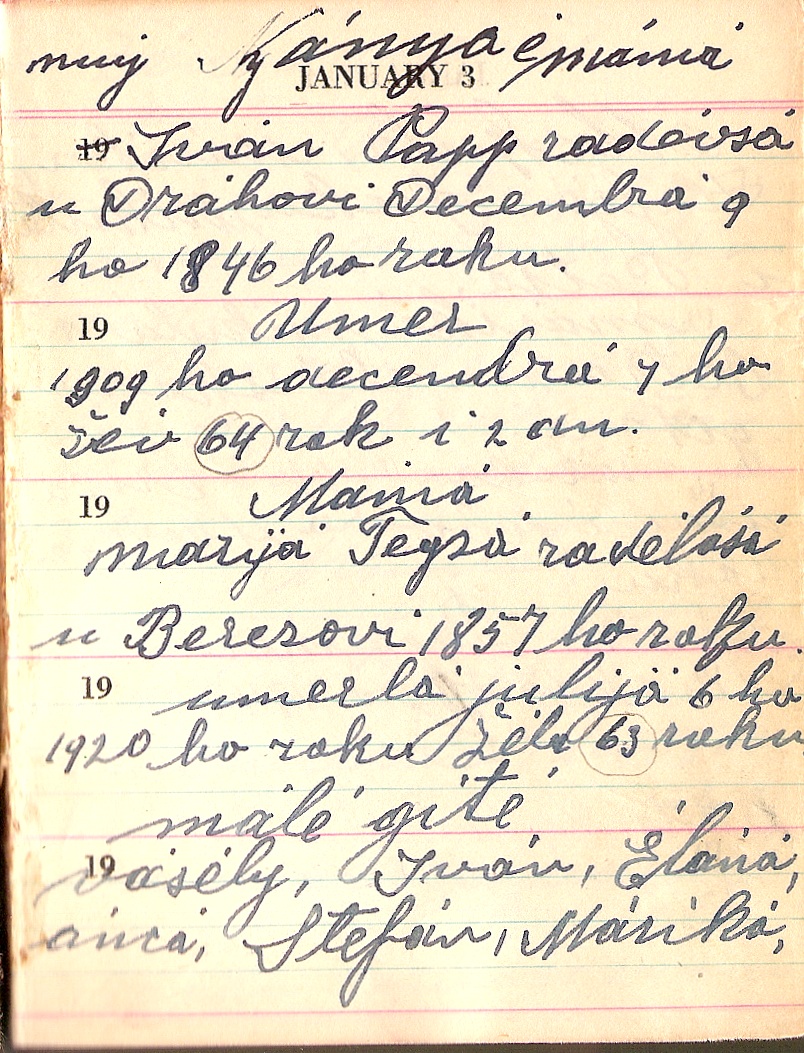 muj Nyánya é mámá
JANUARY 3
19 Iván Papp radévsá
u Dráhovi Decembrá 9
ho 1846 ho raku.
19 Umer
1909 ho decembrá 7 ho
žév 64 rak i 2 dn.
19 Mámá
Marijá Tegzá radélásá
u Berezovi 1857 ho raku.
19 umerlá julijá 6 ho
1920 ho raku žélá 63 raku
málé gité
19 vásély, Iván, Éláná,
áncá, Stefán, Máriká,